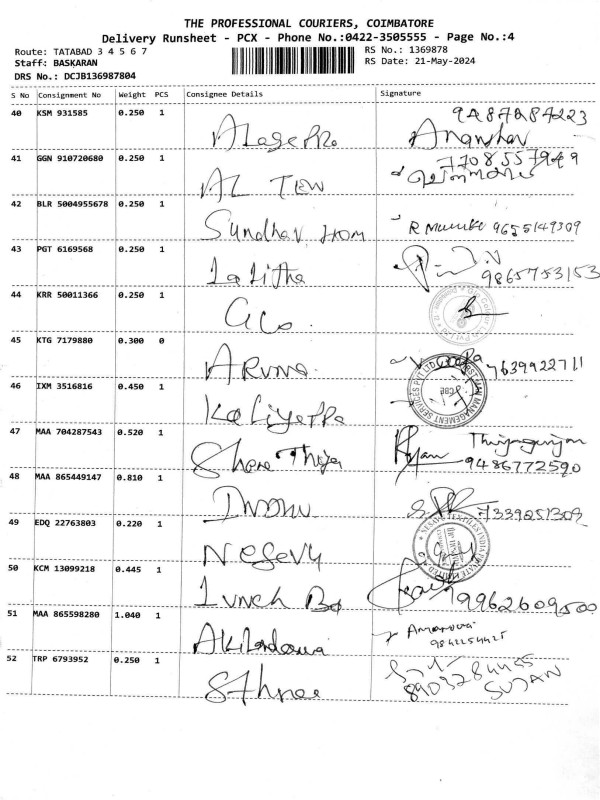 THE PROFESSIONAL COURIERS, COIMBATORE
Delivery Runsheet - PCX - Phone No.:0422-3505555 - Page No.:4
Route: TATABAD 3 4 5 6 7
RS No.: 1369878
Staff: BASKARAN
RS Date: 21-May-2024
DRS No.: DCJB136987804
S No Consignment No Weight PCS Consignee Details Signature
40 KSM 931585 0.250 1
Alagappa
41 GGN 910720680 0.250 1
7708557949
AL TEW
42 BLR 5004955678 0.250 1
Sundhar Hom 9655149309
43 PGT 6169568 0.250 1
Lalitha 9865753153
44 KRR 50011366 0.250 1
GCo
45 KTG 7179880 0.300 0
ARUNA 7639922711
46 IXM 3516816 0.450 1
Kaliyappa
47 MAA 704287543 0.520 1
Share Thiya 9486772590
48 MAA 865449147 0.810 1
7339251309
49 EDQ 22763803 0.220 1
Nesavu
50 KCM 13099218 0.445 1
Lunch Bo 9962609500
51 MAA 865598280 1.040 1
9842254425
52 TRP 6793952 0.250 1
8903284455
SUJAN